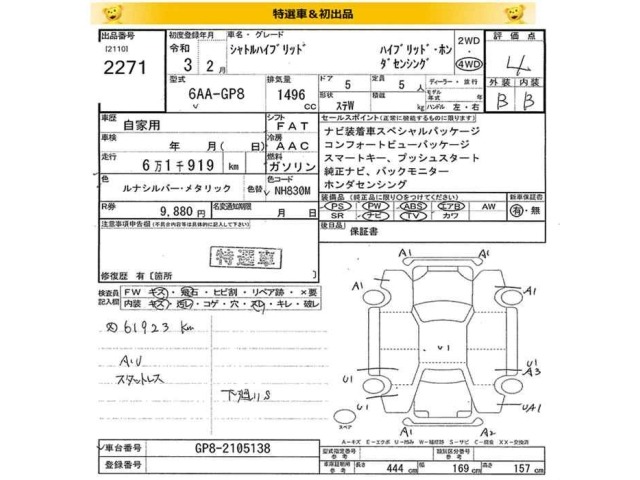 特選車＆初出品
出品番号 初度登録年月 車名・グレード 評価点
[2110] 令和 シャトルハイブリッド ハイブリッド・ホン 2WD
2271 3 2月 ダセンシング 4WD 4
型式 排気量 ドア 5 定員 5人 ディーラー・並行 外装 内装
6AA-GP8 1496 CC 形状 ステW 積載 kg モデル年式 年 ハンドル 左・右 B B
車歴 自家用 シフト FAT セールスポイント(正常に機能するものに限ります)
車検 年 月(日) 冷房 AAC ナビ装着車スペシャルパッケージ
コンフォートビューパッケージ
走行 6万1千919 km 燃料 ガソリン スマートキー、プッシュスタート
純正ナビ、バックモニター
色 ルナシルバー・メタリック 色替 カラーコード NH830M ホンダセンシング
R券 9,880円 名変期限 月 日 装備品(純正品に限り○をつけてください) 新車保証書
PS PW ABS エアB AW 有・無
SR ナビ TV カワ
注意事項申告欄 後日品 保証書
特選車
修復歴 有 [箇所
検査員記入欄 FW キズ・飛石・ヒビ割・リペア跡・×要
内装 キズ・汚レ・コゲ・穴・スレ・キレ・破レ
61923 km
AU
スタットレス
下廻りS
A1
A1 A1
U1
U1
A3
U1 UA1
A1 A2
スペア
A－キズ E－エクボ U－凹み W－補修跡 S－サビ C－腐食 XX－交換済
車台番号 GP8-2105138 型式指定番号 参考 類別区分番号 参考
登録番号 車庫証明用 参考 長さ 444 cm 幅 169 cm 高さ 157 cm